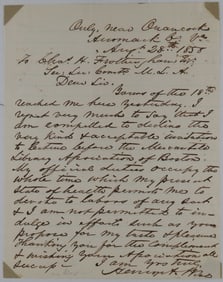 Only, near Onancock
Accomack Co. Va.
Aug. 28th 1858
To Chas. H. Frothingham Esq.
Lec. Com. M. L. A.
Dear Sir.
Yours of the 18th
reached me here yesterday. I
regret very much to say that I
am compelled to decline the
very kind & acceptable invitation
to lecture before the Mercantile
Library Association of Boston.
My official duties occupy the
whole time which my present
state of health permits me to
devote to labors of any sort
& I am not permitted to in-
dulge in efforts such as you
propose for my taste & pleasure
Thanking you for the compliment
& wishing your Association all
success
I am Yrs truly
Henry A. Wise